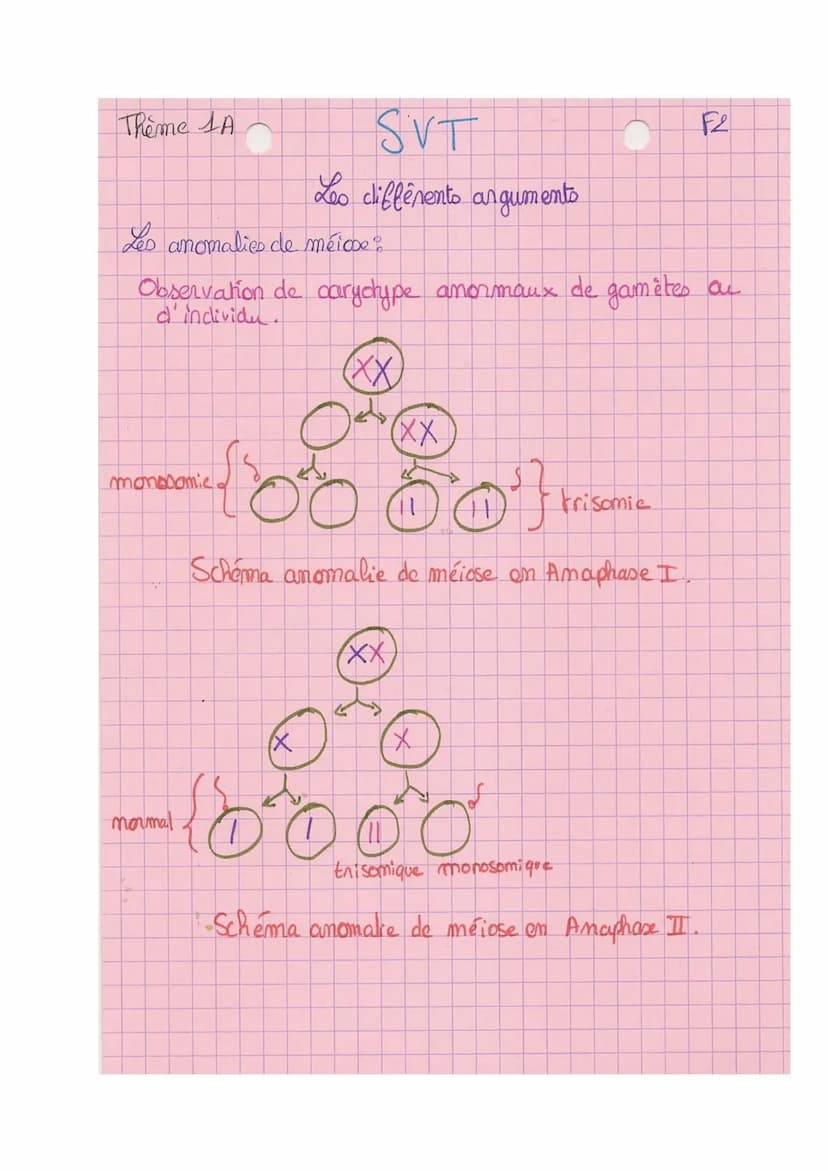 Thème 1A
SVT
F2
Les différents arguments
Les anomalies de méiose :
Observation de caryotype anormaux de gamètes ou
d'individu.
monosomie
trisomie
Schéma anomalie de méiose en Anaphase I.
normal
trisomique monosomique
-Schéma anomalie de méiose en Anaphase II.